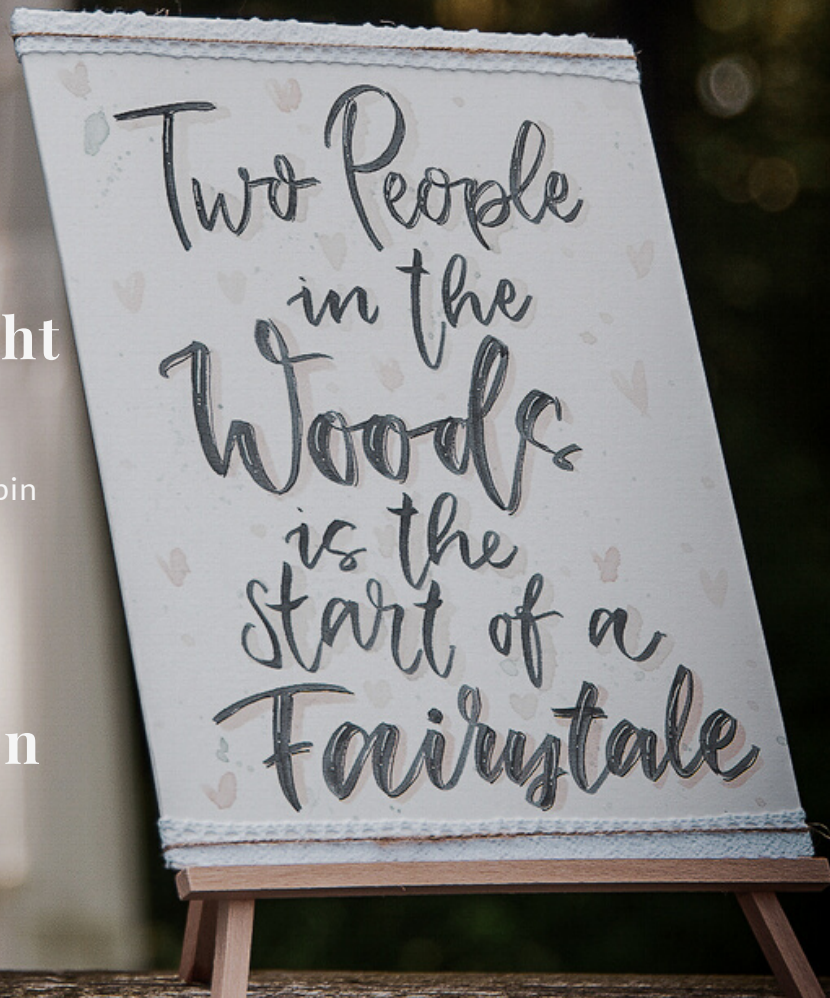 Two People
in the
Woods
is the
start of a
Fairytale
ht
oin
n